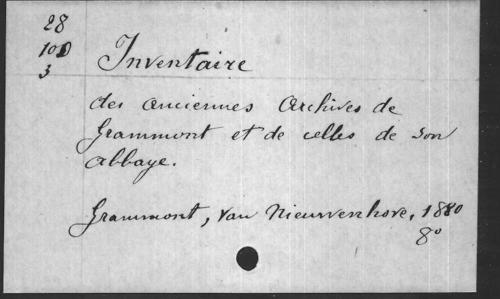 28
10D
3
Inventaire
des anciennes Archives de
Grammont et de celles de son
abbaye.
Grammont, Van Nieuwenhove, 1880
8°